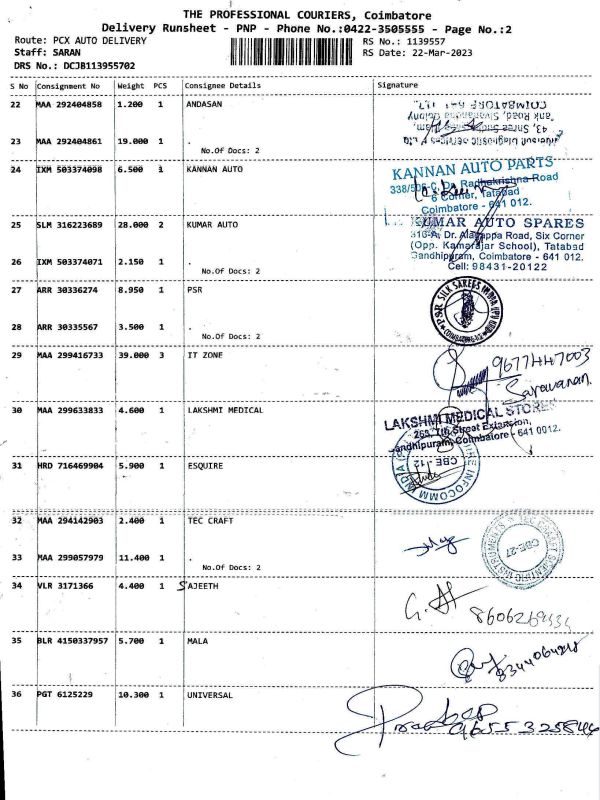 THE PROFESSIONAL COURIERS, Coimbatore
Delivery Runsheet - PNP - Phone No.:0422-3505555 - Page No.:2
Route: PCX AUTO DELIVERY
RS No.: 1139557
Staff: SARAN
RS Date: 22-Mar-2023
DRS No.: DCJB113955702
S No Consignment No Weight PCS Consignee Details Signature
22 MAA 292404858 1.200 1 ANDASAN
COIMBATORE
23 MAA 292404861 19.000 1 .
No.Of Docs: 2
24 IXM 503374098 6.500 1 KANNAN AUTO
KANNAN AUTO PARTS
Dr. Radhakrishna Road
6 Corner, Tatabad
Coimbatore - 641 012.
25 SLM 316223689 28.000 2 KUMAR AUTO
KUMAR AUTO SPARES
316-A, Dr. Alagappa Road, Six Corner
(Opp. Kamarajar School), Tatabad
Gandhipuram, Coimbatore - 641 012.
Cell: 98431-20122
26 IXM 503374071 2.150 1 .
No.Of Docs: 2
27 ARR 30336274 8.950 1 PSR
PSR SILK SAREES INDIA (P)
28 ARR 30335567 3.500 1 .
No.Of Docs: 2
29 MAA 299416733 39.000 3 IT ZONE
9677447003
Saravanan
30 MAA 299633833 4.600 1 LAKSHMI MEDICAL
LAKSHMI MEDICAL STORES
Street Extension,
Gandhipuram, Coimbatore - 641 0012.
31 HRD 716469904 5.900 1 ESQUIRE
CBE-12
INFOCOMM INDIA
32 MAA 294142903 2.400 1 TEC CRAFT
CBE-27
33 MAA 299057979 11.400 1 .
No.Of Docs: 2
34 VLR 3171366 4.400 1 SAJEETH
35 BLR 4150337957 5.700 1 MALA
36 PGT 6125229 10.300 1 UNIVERSAL